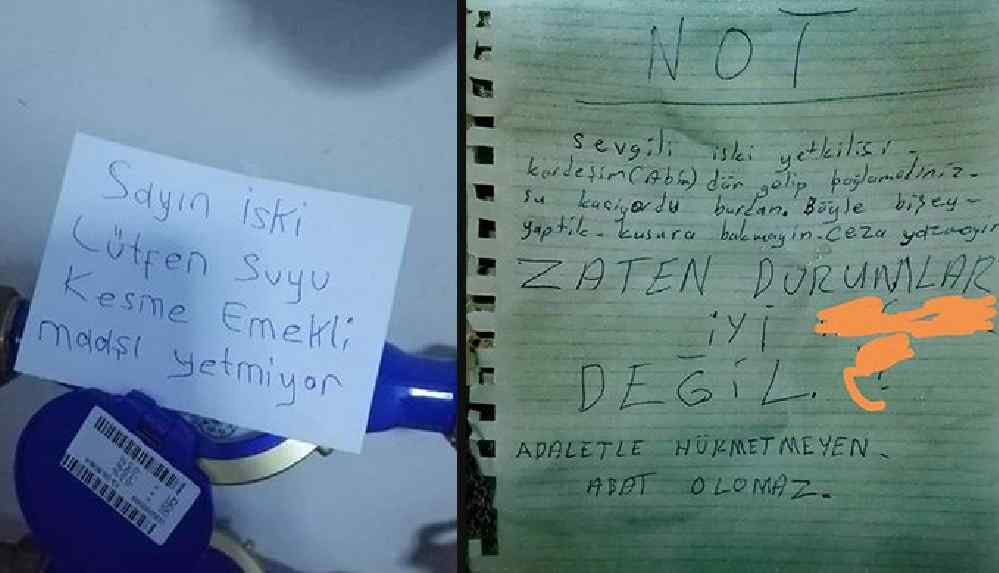 Sayın iski
Lütfen suyu
Kesme Emekli
maaşı yetmiyor
NOT
sevgili iski yetkilisi-
kardeşim(Abim) dün gelip bağlamadınız-
su kaçıyordu burdan. Böyle bişey-
yaptik- kusura bakmayin. ceza yazmayin
ZATEN DURUMLAR
iYi
DEĞiL. !
ADALETLE HÜKMETMEYEN-
ABAT OLOMAZ-